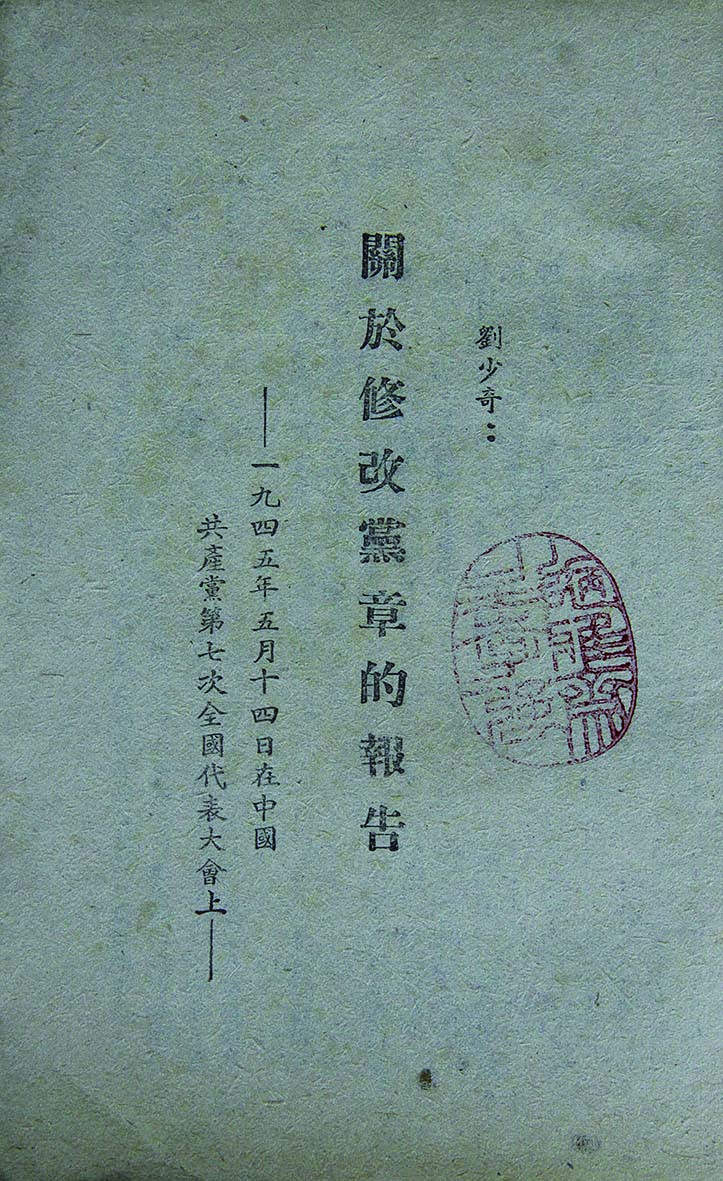 劉少奇：
關於修改黨章的報告
——一九四五年五月十四日在中國
共產黨第七次全國代表大會上——